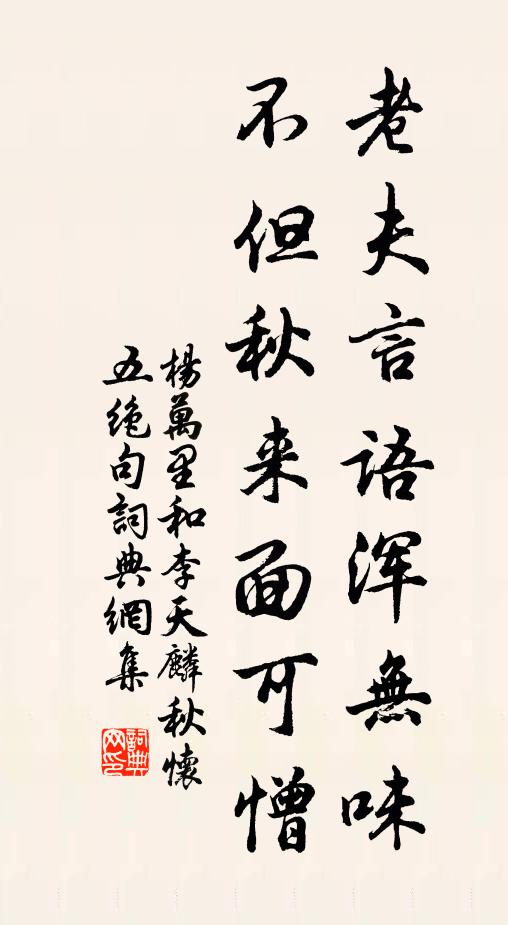 老夫言语浑無味
不但秋来面可憎
楊萬里和李天麟秋懷
五绝句詞典網集
詞典
网印